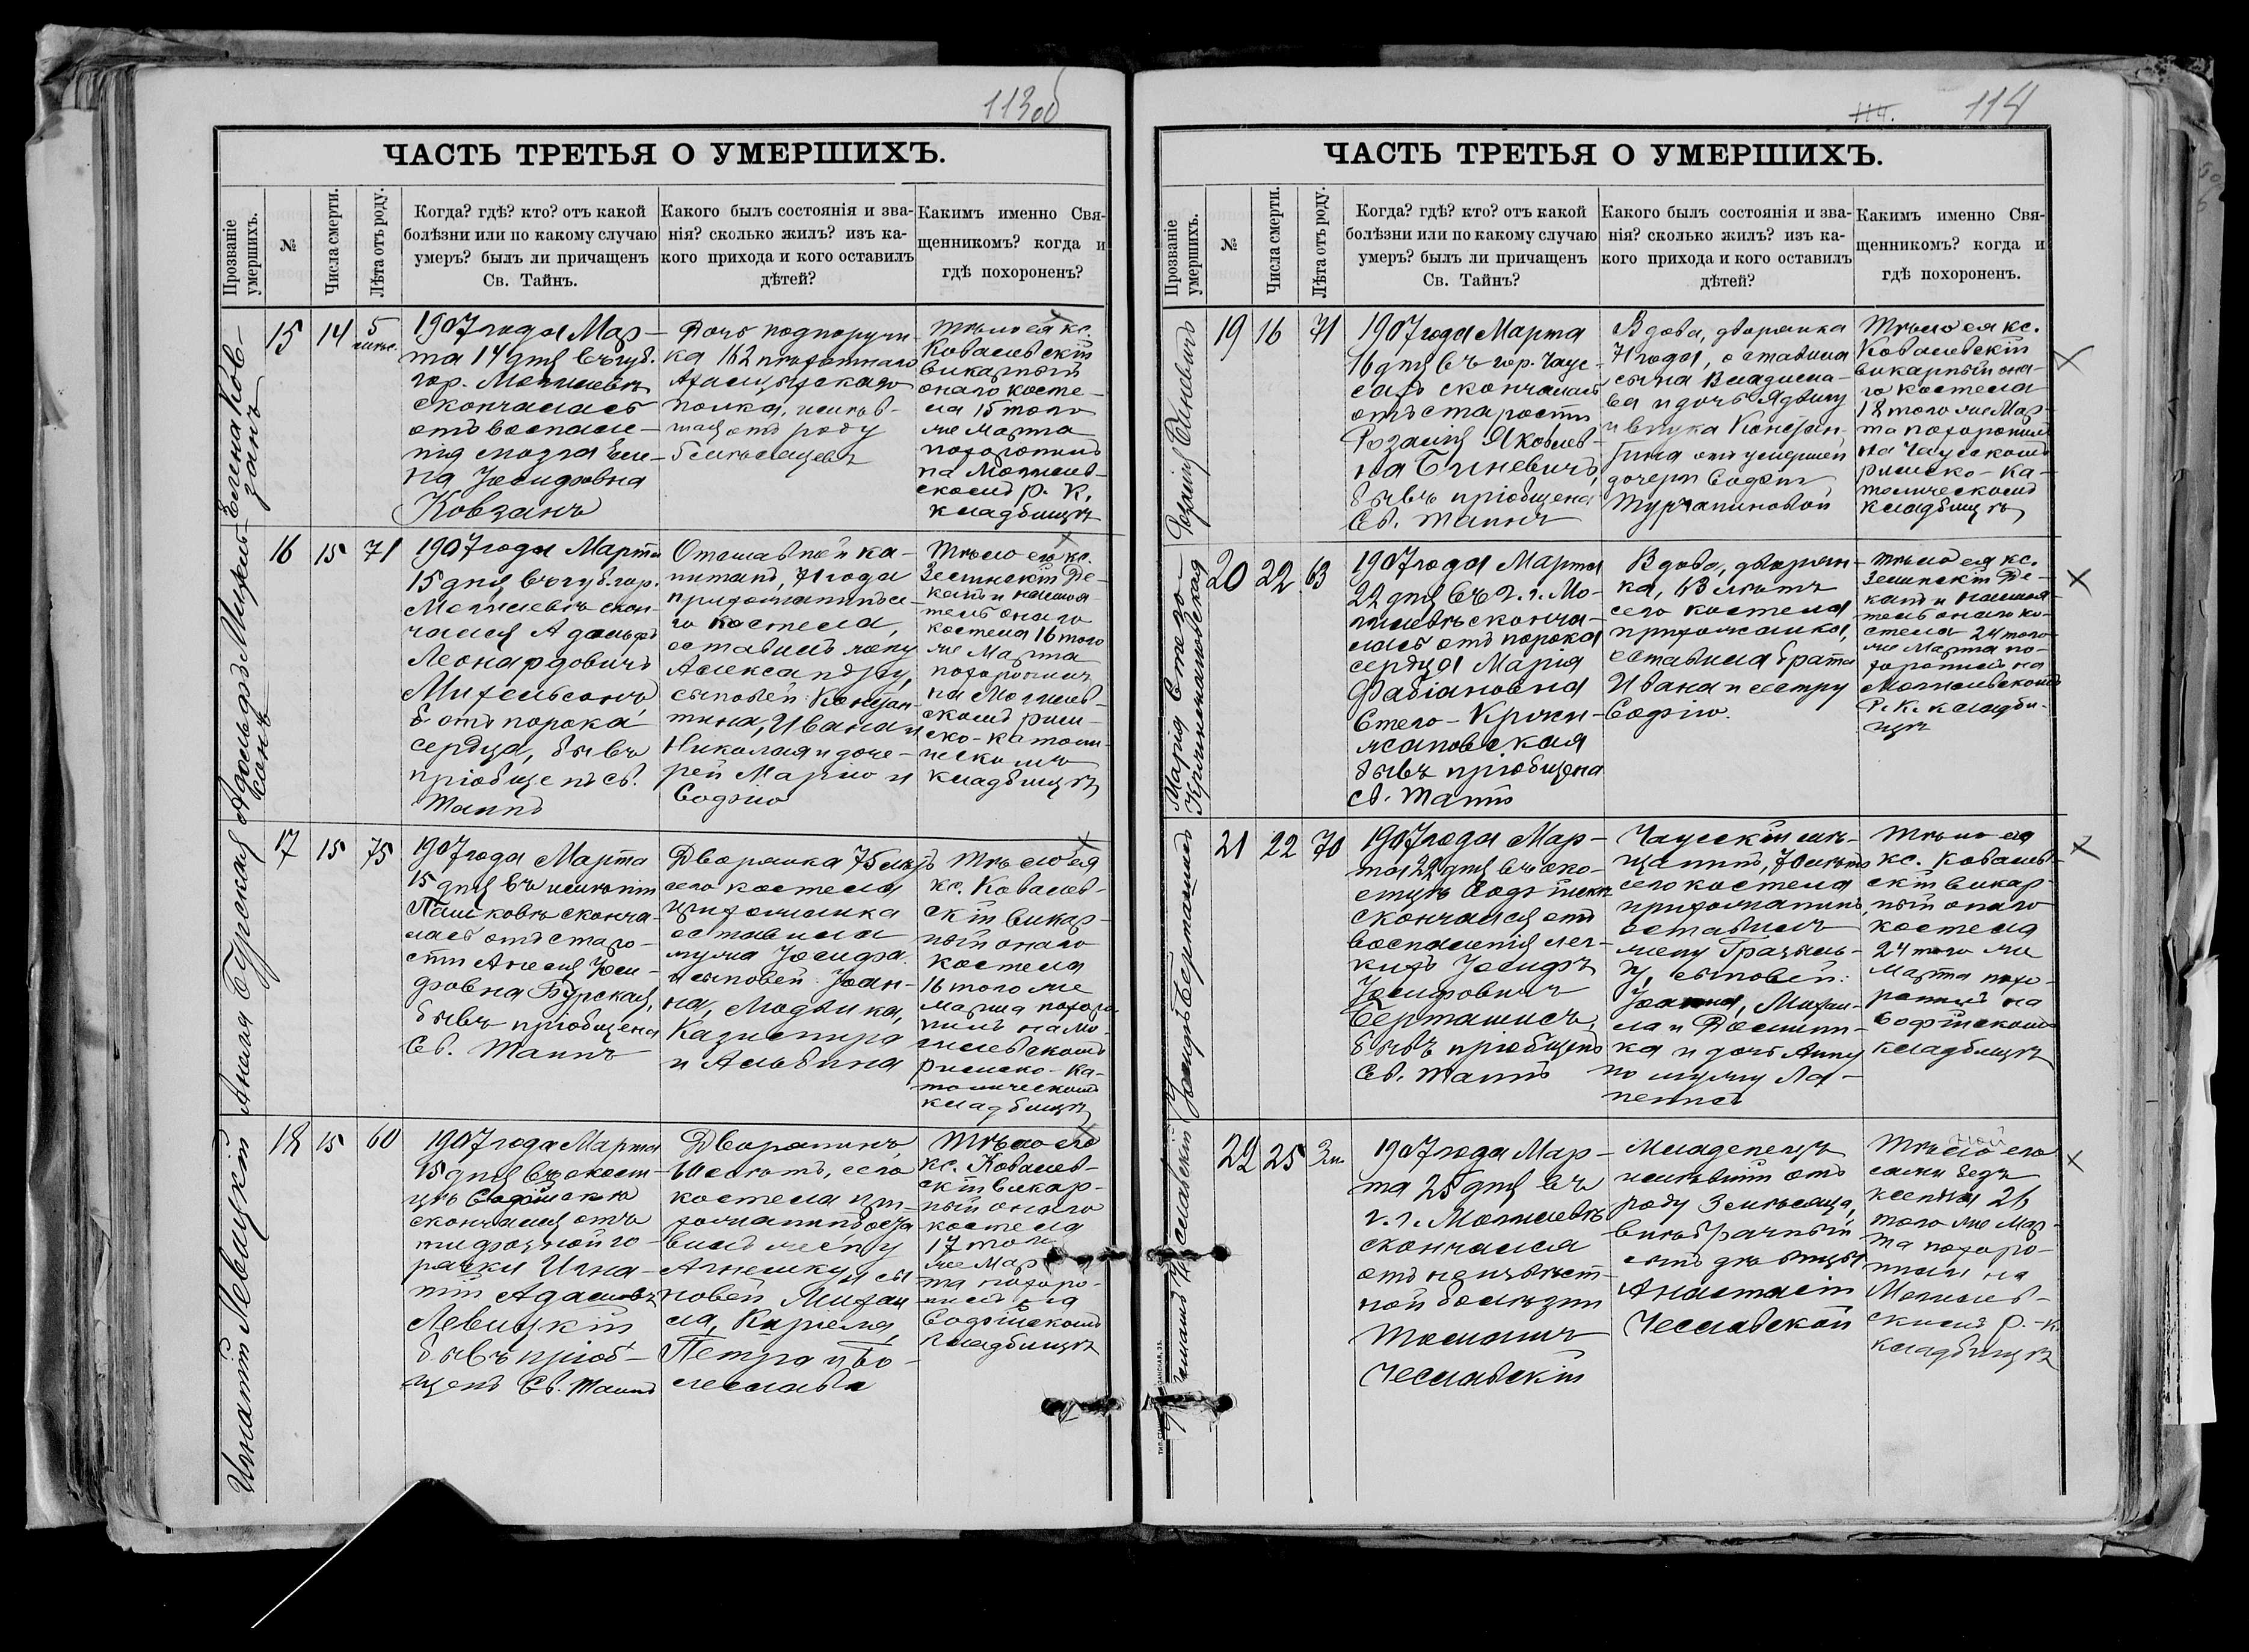 113об
ЧАСТЬ ТРЕТЬЯ О УМЕРШИХЪ.
Прозваніе умершихъ.
№
Числа смерти.
Лѣта отъ роду.
Когда? гдѣ? кто? отъ какой
болѣзни или по какому случаю
умеръ? былъ ли причащенъ
Св. Тайнъ.
Какого былъ состоянія и зва-
нія? сколько жилъ? изъ ка-
кого прихода и кого оставилъ
дѣтей?
Какимъ именно Свя-
щенникомъ? когда и
гдѣ похороненъ?
Елена Ков-
занъ
15
14
5
1907 года Мар-
та 14 дня въ губ.
гор. Могилевѣ
скончалась
отъ воспале-
нія мозга Еле-
на Іосифовна
Ковзанъ
Дочь подпоручи-
ка 162 пѣхотнаго
Ахалцыхскаго
полка, жив-
шая отъ роду
5 мѣсяцевъ
Тѣло ея кс.
Ковалевскій
викарный
онаго косте-
ла 15 того
же Марта
похоронилъ
на Могилев-
скомъ р. к.
кладбищѣ
Адольфъ Михель-
сонъ
16
15
71
1907 года Марта
15 дня въ губ. гор.
Могилевѣ скон-
чался Адольфъ
Леонардовичъ
Михельсонъ,
отъ порока
сердца, бывъ
пріобщенъ св.
Таинъ
Отставной ка-
питанъ, 71 года
прихожанинъ се-
го костела,
оставилъ жену
Александру,
сыновей: Констан-
тина, Ивана и
Николая и доче-
рей Марію и
Софію
Тѣло его кс.
Зелинскій Де-
канъ и настоя-
тель онаго
костела 16 того
же Марта
похоронилъ
на Могилев-
скомъ рим-
ско-католи-
ческомъ
кладбищѣ
Анеля Бурская
17
15
75
1907 года Марта
15 дня въ имѣніи
Пашковѣ сконча-
лась отъ старо-
сти Анеля Іоси-
фовна Бурская,
бывъ пріобщена
Св. Таинъ
Дворянка 75 лѣтъ
сего костела
прихожанка
оставила
мужа Іосифа
и сыновей: Іоан-
на, Людвика,
Казимира
и Альбина
Тѣло ея
кс. Ковалев-
скій викар-
ный онаго
костела
16 того же
марта похоро-
нилъ на Мо-
гилевскомъ
римско-ка-
толическомъ
кладбищѣ
Игнатій Левицкій
18
15
60
1907 года Марта
15 дня въ окол-
цѣ Софійскѣ
скончался отъ
тифозной го-
рячки Игна-
тій Адамовъ
Левицкій
бывъ пріоб-
щенъ Св. Таинъ
Дворянинъ,
лѣтъ, сего
костела при-
хожанинъ оста-
вилъ жену
Агнешку и сы-
новей Михаи-
ла, Карела,
Петра и Бо-
леслава
Тѣло его
кс. Ковалев-
скій викар-
ный онаго
костела
17 того
же Мар-
та похоро-
нилъ на
Софійскомъ
кладбищѣ
114.
114
ЧАСТЬ ТРЕТЬЯ О УМЕРШИХЪ.
Прозваніе умершихъ.
№
Числа смерти.
Лѣта отъ роду.
Когда? гдѣ? кто? отъ какой
болѣзни или по какому случаю
умеръ? былъ ли причащенъ
Св. Тайнъ?
Какого былъ состоянія и зва-
нія? сколько жилъ? изъ ка-
кого прихода и кого оставилъ
дѣтей?
Какимъ именно Свя-
щенникомъ? когда и
гдѣ похороненъ.
Розалія Биневичъ
19
16
71
1907 года Марта
16 дня въ гор. Чаус-
сахъ скончалась
отъ старости
Розалія Яковлев-
на Биневичъ,
бывъ пріобщена
Св. Таинъ
Вдова, дворянка
71 года, оставила
сына Владисла-
ва и дочь Ядвигу
и внука Констан-
тина отъ умершей
дочери Софіи
Турчаниновой
Тѣло ея кс.
Ковалевскій
викарный она-
го костела
18 того же Мар-
та похоронилъ
на Чаусскомъ
римско-ка-
толическомъ
кладбищѣ
Марія Стего-
Кржижановская
20
22
63
1907 года Марта
22 дня въ г. г. Мо-
гилевѣ сконча-
лась отъ порока
сердца Марія
Фабіановна
Стего-Кржи-
жановская
бывъ пріобщена
св. Таинъ
Вдова, дворян-
ка, 63 лѣтъ
сего костела
прихожанка,
оставила брата
Ивана и сестру
Софію.
Тѣло ея кс.
Зелинскій Де-
канъ и настоя-
тель онаго ко-
стела 24 того
же Марта по-
хоронилъ на
Могилевскомъ
р. к. кладби-
щѣ
Іосифъ Берташисъ
21
22
70
1907 года Мар-
та 22 дня въ око-
лицѣ Софійскѣ
скончался отъ
воспаленія лег-
кихъ Іосифъ
Іосифовичъ
Берташисъ,
бывъ пріобщенъ
Св. Таинъ
Чаусскій мѣ-
щанинъ, 70 лѣтъ
сего костела
прихожанинъ,
оставилъ
жену
сыновей:
Іоанна, Михаи-
ла и Домини-
ка и дочь Анну
по мужу
Тѣло его
кс. Ковалев-
скій викар-
ный онаго
костела
24 того же
Марта похо-
ронилъ на
Софійскомъ
кладбищѣ
Чеславскій
22
25
3 м.
1907 года Мар-
та 25 дня въ
г. г. Могилевѣ
скончался
отъ неизвѣст-
ной болѣзни
Чеславскій
Младенецъ
жившій отъ
роду 3 мѣсяца,
внѣбрачный
сынъ дѣвицы
Анастасіи
Чеславской
Тѣло его
сами безъ
ксендза 26
того же Мар-
та похоро-
нили на
Могилев-
скомъ р.-к.
кладбищѣ